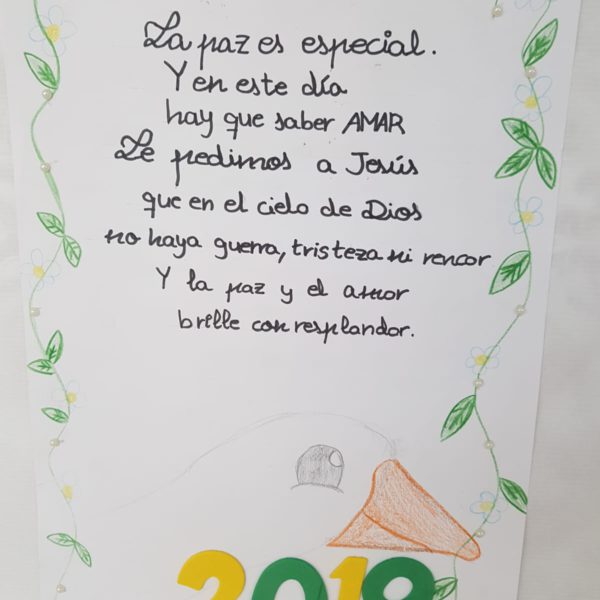 La paz es especial.
Y en este día
hay que saber AMAR
Le pedimos a Jesús
que en el cielo de Dios
no haya guerra, tristeza ni rencor
Y la paz y el amor
brille con resplandor.
2019